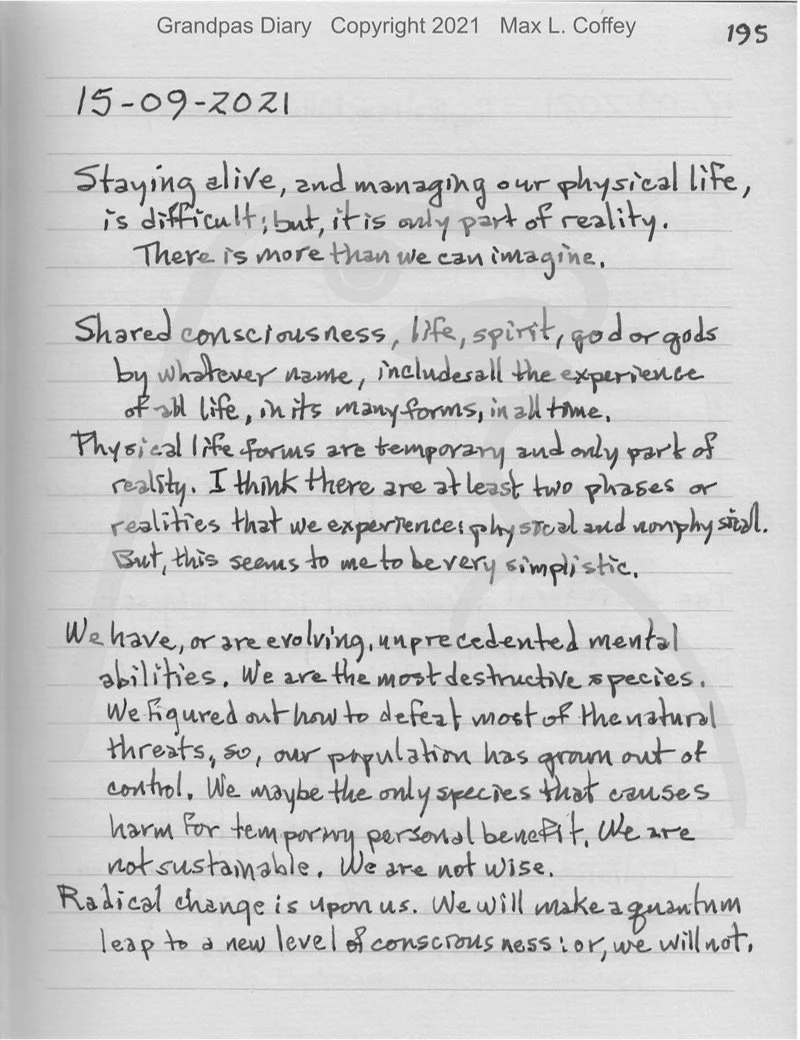 Grandpas Diary Copyright 2021 Max L. Coffey
195
15-09-2021
Staying alive, and managing our physical life,
is difficult; but, it is only part of reality.
There is more than we can imagine.
Shared consciousness, life, spirit, god or gods
by whatever name, includes all the experience
of all life, in its many forms, in all time.
Physical life forms are temporary and only part of
reality. I think there are at least two phases or
realities that we experience: physical and nonphysical.
But, this seems to me to be very simplistic.
We have, or are evolving, unprecedented mental
abilities. We are the most destructive species.
We figured out how to defeat most of the natural
threats, so, our population has grown out of
control. We maybe the only species that causes
harm for temporary personal benefit. We are
not sustainable. We are not wise.
Radical change is upon us. We will make a quantum
leap to a new level of consciousness: or, we will not.